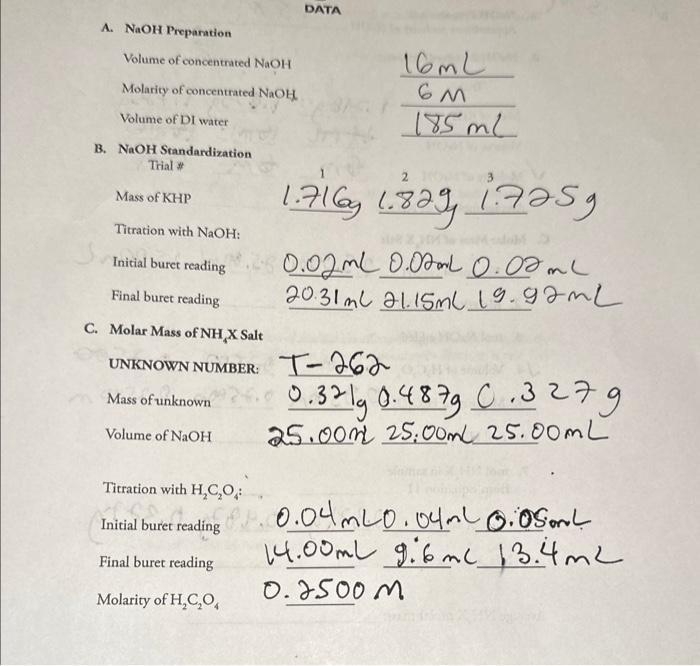 DATA
A. NaOH Preparation
Volume of concentrated NaOH 16mL
Molarity of concentrated NaOH 6 M
Volume of DI water 185 mL
B. NaOH Standardization
Trial # 1 2 3
Mass of KHP 1.716g 1.829g 1.725g
Titration with NaOH:
Initial buret reading 0.02mL 0.02mL 0.02mL
Final buret reading 20.31mL 21.15mL 19.92mL
C. Molar Mass of NH₄X Salt
UNKNOWN NUMBER: T-262
Mass of unknown 0.321g 0.487g 0.327g
Volume of NaOH 25.00mL 25.00mL 25.00mL
Titration with H₂C₂O₄:
Initial buret reading 0.04mL 0.04mL 0.05mL
Final buret reading 14.00mL 9.6mL 13.4mL
Molarity of H₂C₂O₄ 0.2500 M